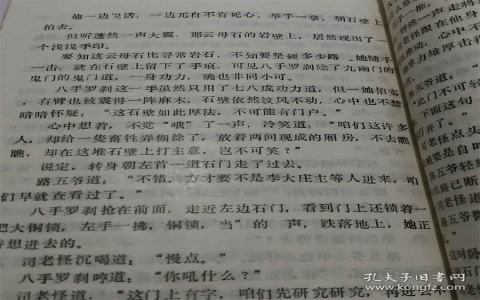 他一边说话，一边兀自不肯死心，举手一掌，朝石壁上
拍去。
但听蓬然一声大震，那云母石的岩壁上，居然现出了一
个浅浅手印。
要知这云母石比寻常岩石，不知要坚硬多少路，她随手
一击，就在石壁上留下了手痕，可见八手罗刹除了九幽门的
鬼门的鬼门道，一身功力，确也非同小可。
八手罗刹这一手虽然只用了七八成功力道，但一她怕实
，右臂也被震得一阵麻木，石壁依然纹风不动，心中也不禁
暗暗怀疑，“这石壁如此厚法，不可能有门户。”
心中想着，不觉“哦”了一声，冷笑道：“咱们这许多
人，却给一只畜牲弄糊涂了，放着两间现成的厢房，不去瞧
瞧，却在这堆石壁上打主意，岂不可笑？”
说完，转身朝左首一道石门走了过去。
路五爷道：“不错，方才要不是李大庄主等人进来，咱
们早就查看过了。”
八手罗刹抢在前面，走近左边石门，看到门上还锁着一
把大铜锁，左手一拂，铜锁，当”的一声，跌落地上，她正
待想进去的。
司老怪沉喝道：“慢点。”
八手罗刹哼道：“你吼什么？”
司老怪道：“这门上有字，咱们先研究研究，再进
孔夫子旧书网
www.kongfz.com